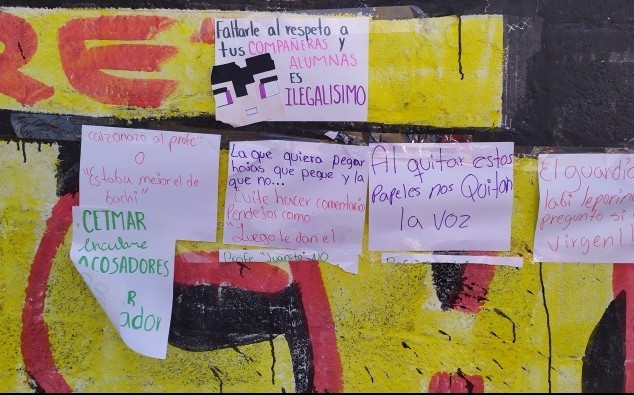 Faltarle al respeto a
tus COMPAÑERAS y
ALUMNAS
ES
ILEGALISIMO
calzonazo al profe"
O
"Estaba mejor el de
bachi"
CETMAR
ACOSADORES
R
ador
La que quiera pegar
hojas que pegue y la
que no...
Evite hacer comentario
Pendejos como:
"Luego le dan el
Profe "Juanito" NO
Al quitar estos
Papeles nos Quitan
la voz
El guardia
labi leporino
pregunto si
virgen!!